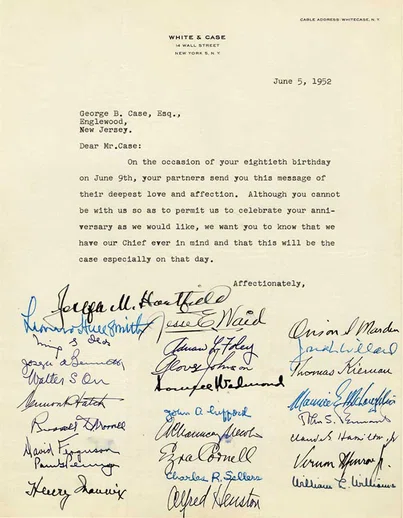 CABLE ADDRESS: WHITECASE, N. Y.
WHITE & CASE
14 WALL STREET
NEW YORK 5, N. Y.
June 5, 1952
George B. Case, Esq.,
Englewood,
New Jersey.
Dear Mr.Case:
On the occasion of your eightieth birthday
on June 9th, your partners send you this message of
their deepest love and affection. Although you cannot
be with us so as to permit us to celebrate your anni-
versary as we would like, we want you to know that we
have our Chief ever in mind and that this will be the
case especially on that day.
Affectionately,
Joseph M. Hartfield
Jesse E. Waid
Orison S Marden
Irving S Olds
Lowell Wadmond
Thomas Kiernan
Joseph A Bennett
Walter S Orr
Vermont Hatch
John A. Gifford
Russell D Morrill
Ezra Cornell
David Ferguson
Charles R. Sellers
Vernon Munroe Jr.
William L. Williams
Henry Mannix
Alfred Heuston